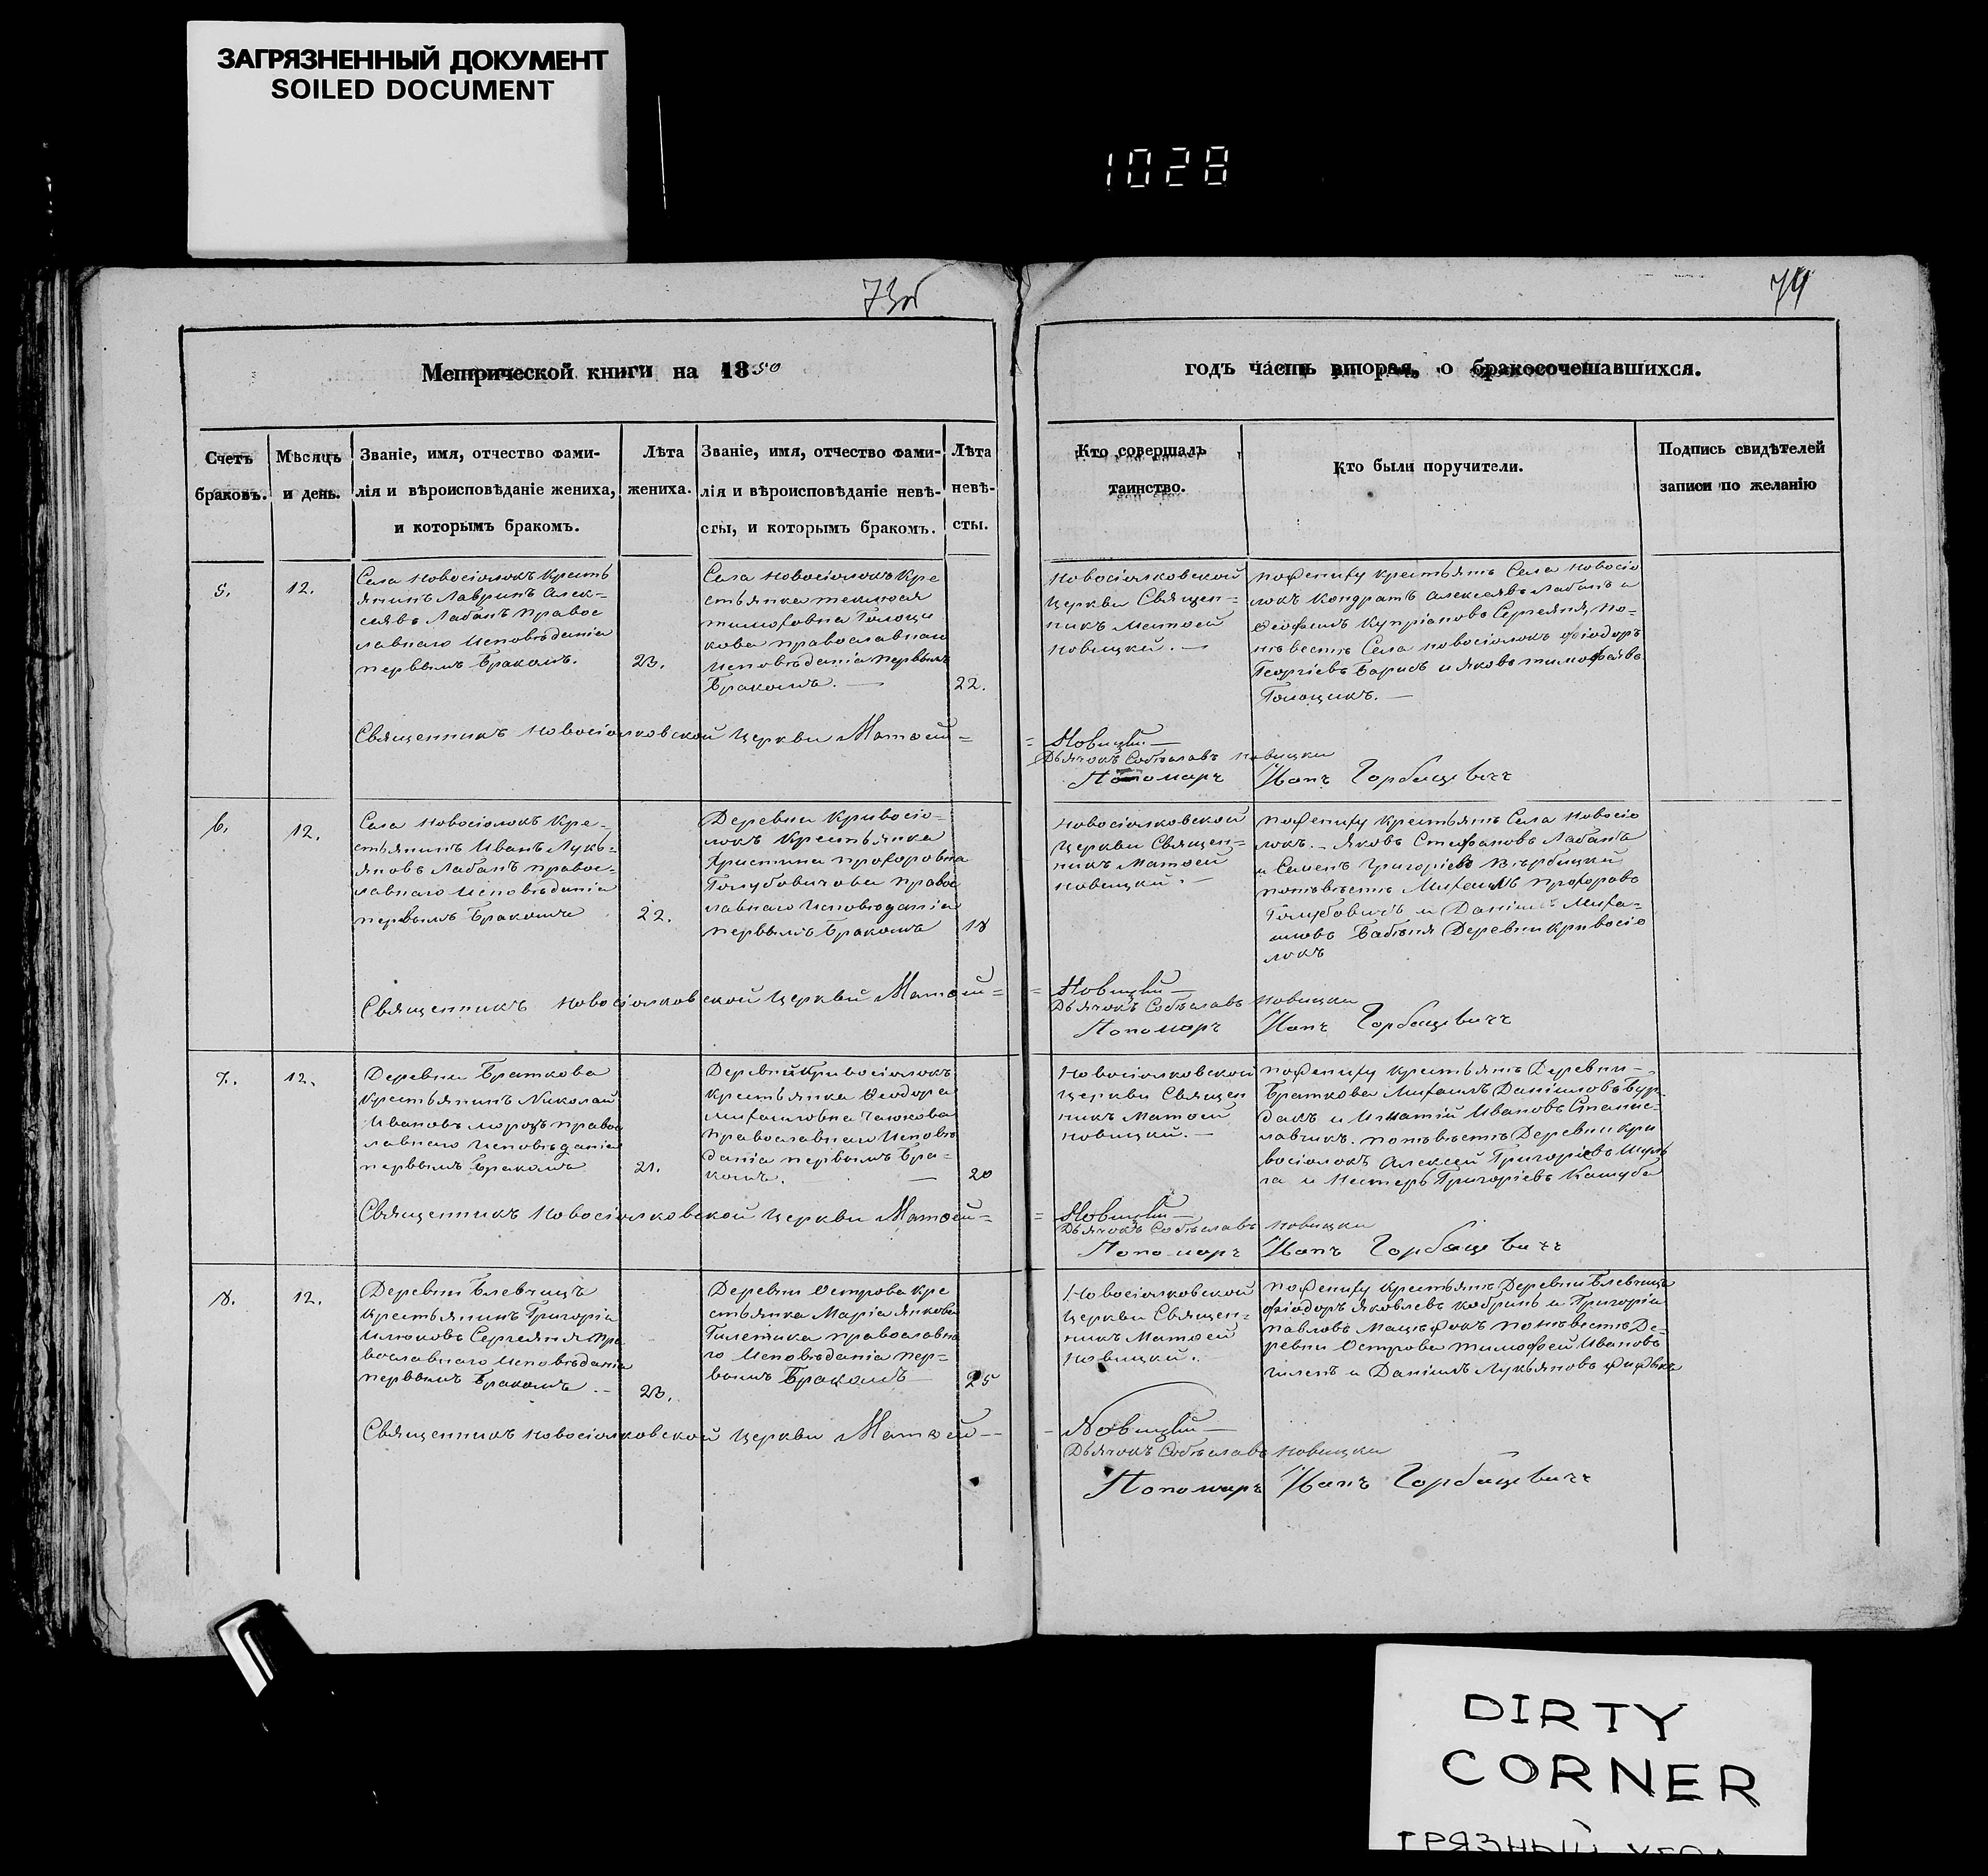 ЗАГРЯЗНЕННЫЙ ДОКУМЕНТ
SOILED DOCUMENT
1028
73об
74
Метрической книги на 1850
годъ часть вторая, о бракосочетавшихся.
Счетъ
браковъ.
Мѣсяцъ
и день.
Званіе, имя, отчество фами-
лія и вѣроисповѣданіе жениха,
и которымъ бракомъ.
Лѣта
жениха.
Званіе, имя, отчество фами-
лія и вѣроисповѣданіе невѣ-
сты, и которымъ бракомъ.
Лѣта
невѣ-
сты.
Кто совершалъ
таинство.
Кто были поручители.
Подпись свидѣтелей
записи по желанію
5.
12.
Села Новосіолокъ Кресть
янинъ Лавринъ Алек-
сеявъ Лабанъ правос
лавнаго Исповѣданія
первымъ Бракомъ.
23.
Села Новосіолокъ Кре
стьянка
Тимоховна Голоци
кова православнаго
Исповѣданія первымъ
Бракомъ. —
22.
Новосіолковской
Церкви Священ=
никъ Матѳей
Новицкій. —
по Жениху крестьянъ Села Новосіо
локъ Кондратъ Алексеявъ Лабанъ и
Ѳеофилъ Купріановъ Сергеяня, по-
невестѣ Села Новосіолокъ Фіодоръ
Георгіевъ Барисъ и Яковъ Тимофѣявъ
Голощикъ. —
Священникъ Новосіолковской Церкви Матѳей=
= Новицкій —
Дьячокъ Собѣславъ Новицки
Пономаръ Иванъ Горбацевичъ
6.
12.
Села Новосіолокъ Кре-
стьянинъ Иванъ Лукь=
яновъ Лабанъ правос-
лавнаго Исповѣданія
первымъ Бракомъ
22.
Деревни Кривосіо-
локъ Крестьянка
Христина Прохоровна
Голубовичова правос
лавнаго Исповѣданія
первымъ Бракомъ
18
Новосіолковской
Церкви Священ=
никъ Матѳей
Новицкій. —
по Жениху Крестьянъ Села Новосіо
локъ. — Яковъ Стифановъ Лабанъ
и Семенъ Григоріевъ Вѣрбицкій
по невѣстѣ Михаилъ Прохоровъ
Голубовичъ и Даніилъ Миха-
иловъ Бабѣня Деревни Кривосіо
локъ
Священникъ Новосіолковской Церкви Матѳей=
= Новицкій —
Дьячокъ Собѣславъ Новицки
Пономаръ Иванъ Горбацевичъ
7.
12.
Деревни Браткова
Крестьянинъ Николай
Ивановъ Морозъ правос
лавнаго Исповѣданія
первымъ Бракомъ
21.
Деревни Кривосіолокъ
Крестьянка Ѳеодора
Михаиловна Чаюкова
Православнаго Исповѣ
данія первымъ Бра-
комъ. —
20
Новосіолковской
Церкви Священ
никъ Матѳей
Новицкій. —
по Жениху Крестьянъ Деревни —
Браткова Михаилъ Даніиловъ Бур
дакъ и Игнатій Ивановъ Станис-
лавчикъ. по невѣстѣ Деревни Кри
восіолокъ Алексей Григоріевъ Шуль
га и Нестеръ Григоріевъ Кашуба
Священникъ Новосіолковской Церкви Матѳей=
= Новицкій —
Дьячокъ Собѣславъ Новицки
Пономаръ Иванъ Горбацевичъ
8.
12.
Деревни Блевчицъ
Крестьянинъ Григорій
Илюковъ Сергеяня пра
вославнаго Исповѣданія
первымъ Бракомъ. —
23.
Деревни Острова Кре
стьянка Марія Янкова
Гилетика православна
го Исповѣданія пер=
вымъ Бракомъ
25
Новосіолковской
Церкви Священ=
никъ Матѳей
Новицкій.
по Жениху Крестьянъ Деревни Блевчицъ
Фіодоръ Яковлевъ Кобринъ и Григорій
Павловъ по невѣстѣ Де-
ревни Острова Тимофей Ивановъ
Гилетъ и Даніилъ Лукьяновъ
Священникъ Новосіолковской Церкви Матѳей —
- Новицкій —
Дьячокъ Собѣславъ Новицки
Пономаръ Иванъ Горбацевичъ
DIRTY
CORNER
ГРЯЗНЫЙ УГОЛ